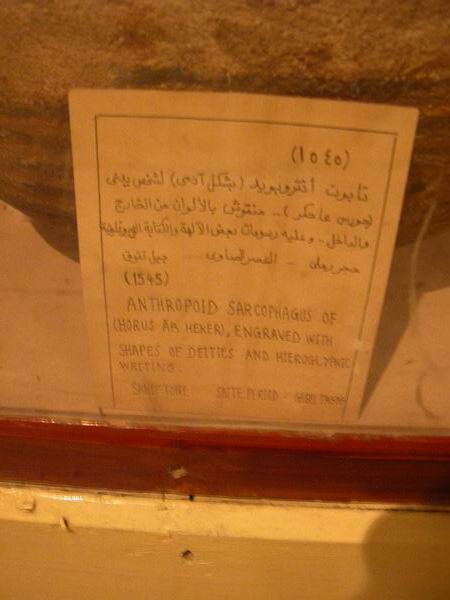 (١٥٤٥)
تابوت أنثروبويد (بشكل آدمى) لشخص يدعى
(حورس عا حكر) .. منقوش بالألوان من الخارج
والداخل .. وعليه رسومات لبعض الآلهة والكتابة الهيروغليفية
حجر رملى - العصر الصاوى - جبل تقوق
(1545)
ANTHROPOID SARCOPHAGUS OF
(HORUS AA HEKER), ENGRAVED WITH
SHAPES OF DEITIES AND HIEROGLYPHIC
WRITING.
SANDSTONE SAITE PERIOD -